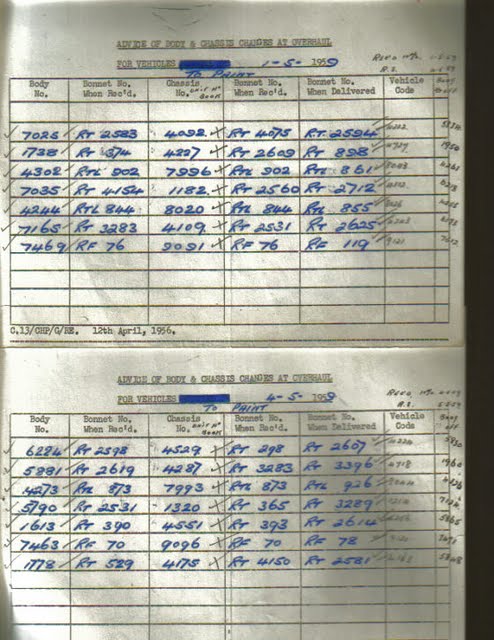 ADVICE OF BODY & CHASSIS CHANGES AT OVERHAUL
FOR VEHICLES 1-5-1959
TO PAINT
Body No. Bonnet No. When Rec'd. Chassis No. Unit No Book Bonnet No. When Rec'd. Bonnet No. When Delivered Vehicle Code
7025 RT 2583 4092 RT 4075 RT 2594
1738 RT 374 4227 RT 2609 RT 898
4302 RTL 902 7996 RTL 902 RTL 861
7035 RT 4154 1182 RT 2560 RT 2712
4244 RTL 844 8020 RTL 844 RTL 855
7165 RT 3283 4109 RT 2531 RT 2625
7469 RF 76 9091 RF 76 RF 119
C.13/CHP/G/RE. 12th April, 1956.
ADVICE OF BODY & CHASSIS CHANGES AT OVERHAUL
FOR VEHICLES 4-5-1959
TO PAINT
Body No. Bonnet No. When Rec'd. Chassis No. Unit No Book Bonnet No. When Rec'd. Bonnet No. When Delivered Vehicle Code
6284 RT 2598 4529 RT 298 RT 2607
5881 RT 2619 4287 RT 3283 RT 3396
4273 RTL 873 7993 RTL 873 RTL 926
5790 RT 2531 1320 RT 365 RT 3289
1613 RT 390 4551 RT 393 RT 2614
7463 RF 70 9096 RF 70 RF 78
1778 RT 529 4175 RT 4150 RT 2581